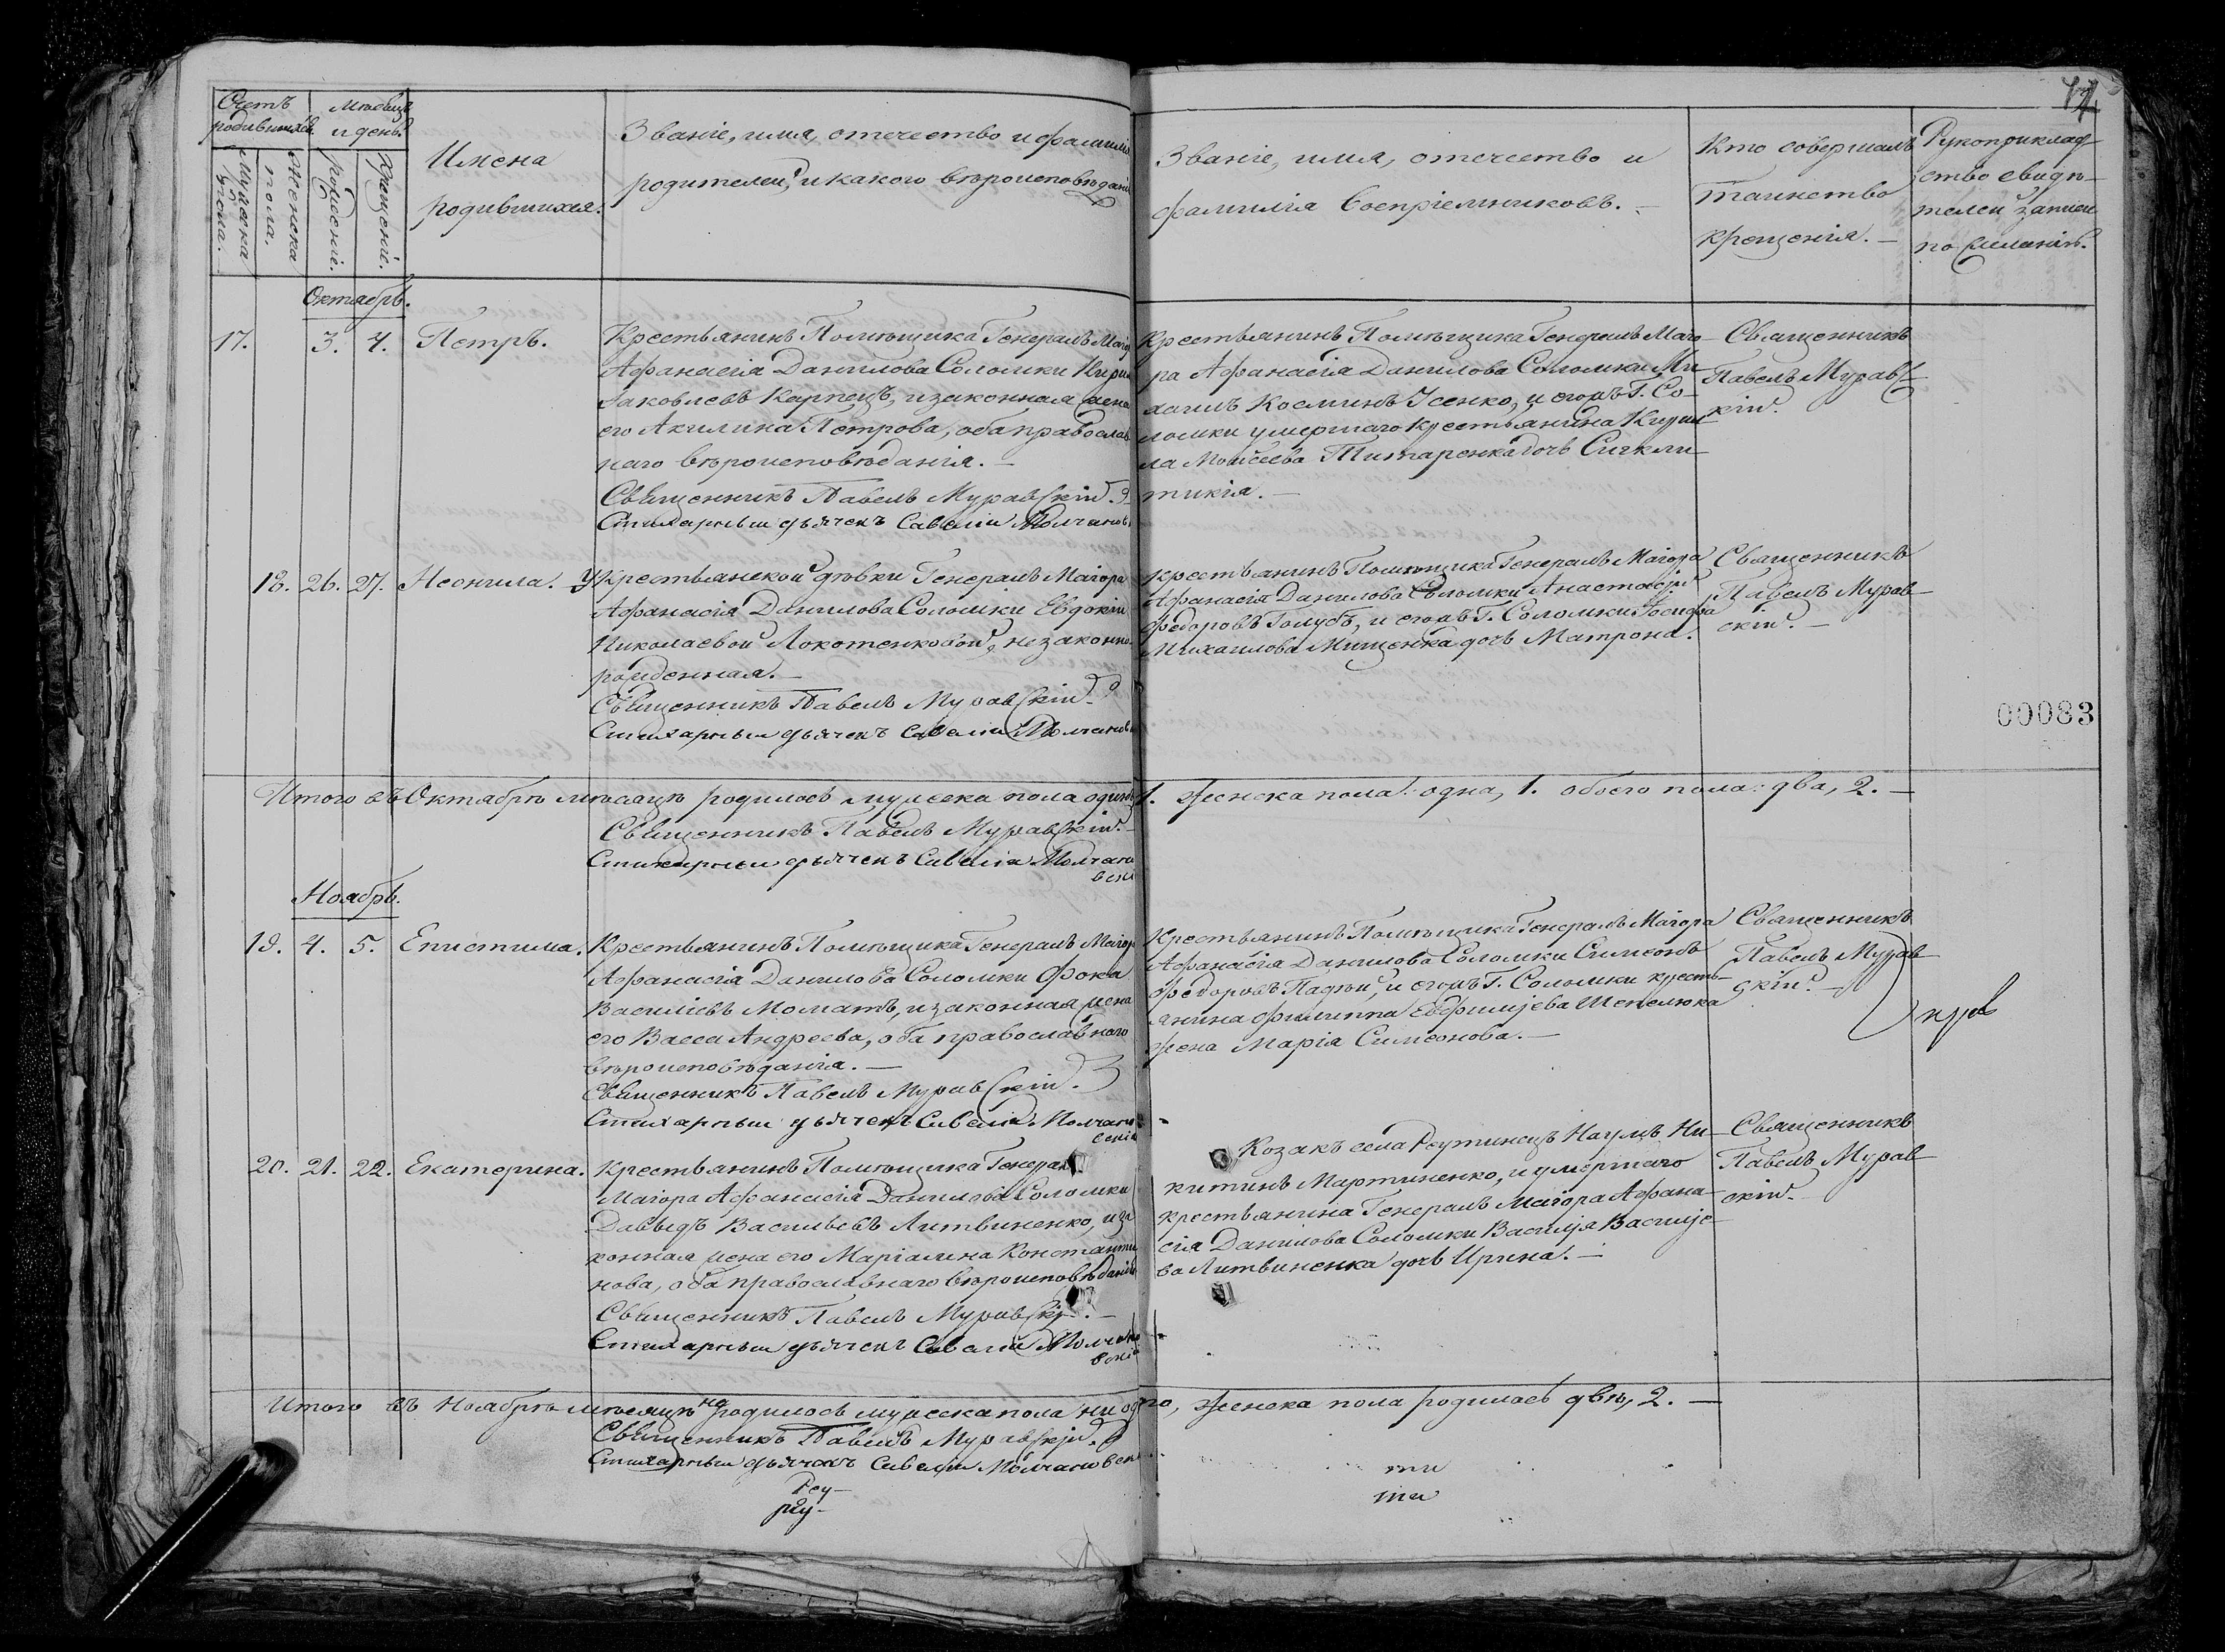 42
Счетъ
родившихся.
Мѣсяцъ
и день.
Мужеска
пола.
Женска
пола.
рожденіе.
Крещеніе.
Имена
родившихся.
Званіе, имя, отечество и фамилія
родителей, и какого вѣроисповѣданія
Званіе, имя, отечество и
фамилія Воспріемниковъ. –
Кто совершалъ
таинство
крещенія. –
Рукоприклад
ство свидѣ–
телей записи
по желанію.
Октябрь.
17. 3. 4. Петръ.
Крестьянинъ Помѣщика Генералъ Маіора
Афанасія Данилова Соломки Кирилъ
Яковлевъ Карпецъ, и законная жена
его Акилина Петрова, оба православ
наго вѣроисповѣданія. –
Священникъ Павелъ Муравскій.
Стихарный дьячекъ Савелій Молчанов
Крестьянинъ Помѣщика Генералъ Маіо–
ра Афанасія Данилова Соломки Ми–
хаилъ Косминъ Усенко, и егожъ Г. Со–
ломки умершаго крестьянина Кири–
ла Моисеева Титаренка дочь Сигкли–
тикія. –
Священникъ
Павелъ Мурав–
скій.
18. 26. 27. Неонила.
У Крестьянской дѣвки Генералъ Маіора
Афанасія Данилова Соломки Евдокіи
Николаевой Локотенковой, незаконно–
рожденная. –
Священникъ Павелъ Муравскій.
Стихарный дьячекъ Савелій Молчанов
Крестьянинъ Помѣщика Генералъ Маіора
Афанасія Данилова Соломки Анастасій
Федоровъ Голубъ, и егожъ Г. Соломки Іосифа
Михаилова Мищенка дочь Матрона.
Священникъ
Павелъ Мурав–
скій. –
00083
Итого въ Октябрѣ мѣсяцѣ родилось мужеска пола одинъ 1. женска пола: одна, 1. обоего пола: два, 2. –
Священникъ Павелъ Муравскій. –
Стихарный дьячекъ Савелій Молчано
вскій
Ноябрь.
19. 4. 5. Епистима.
Крестьянинъ Помѣщика Генералъ Маіора
Афанасія Данилова Соломки Фока
Василіевъ Моматъ, и законная жена
его Васса Андреева, оба православнаго
вѣроисповѣданія. –
Священникъ Павелъ Муравскій.
Стихарный дьячекъ Савелій Молчано
вскій
Крестьянинъ Помѣщика Генералъ Маіора
Афанасія Данилова Соломки Симеонъ
Федоровъ Падѣй, и егожъ Г. Соломки кресть–
янина Филиппа Евфиміева Шепелюка
жена Марія Симеонова. –
Священникъ
Павелъ Мурав–
скій. –
20. 21. 22. Екатерина.
Крестьянинъ Помѣщика Генералъ
Маіора Афанасія Данилова Соломки
Давыдъ Васильевъ Литвиненко, и за
конная жена его Маріамна Константи
нова, оба православнаго вѣроисповѣданія
Священникъ Павелъ Муравскій. –
Стихарный дьячекъ Савелій Молчано
вскій
Козакъ села Реутинецъ Наумъ Ни–
китинъ Мартиненко, и умершаго
крестьянина Генералъ Маіора Афана–
сія Данилова Соломки Василія Василіе–
ва Литвиненка дочь Ирина. –
Священникъ
Павелъ Мурав–
скій. –
Итого въ Ноябрѣ мѣсяцѣ не родилось мужеска пола ни одного, женска пола родилось двѣ, 2. –
Священникъ Павелъ Муравскій.
Стихарный дьячекъ Савелій Молчановскі
Реу–
реу–
ти
ти